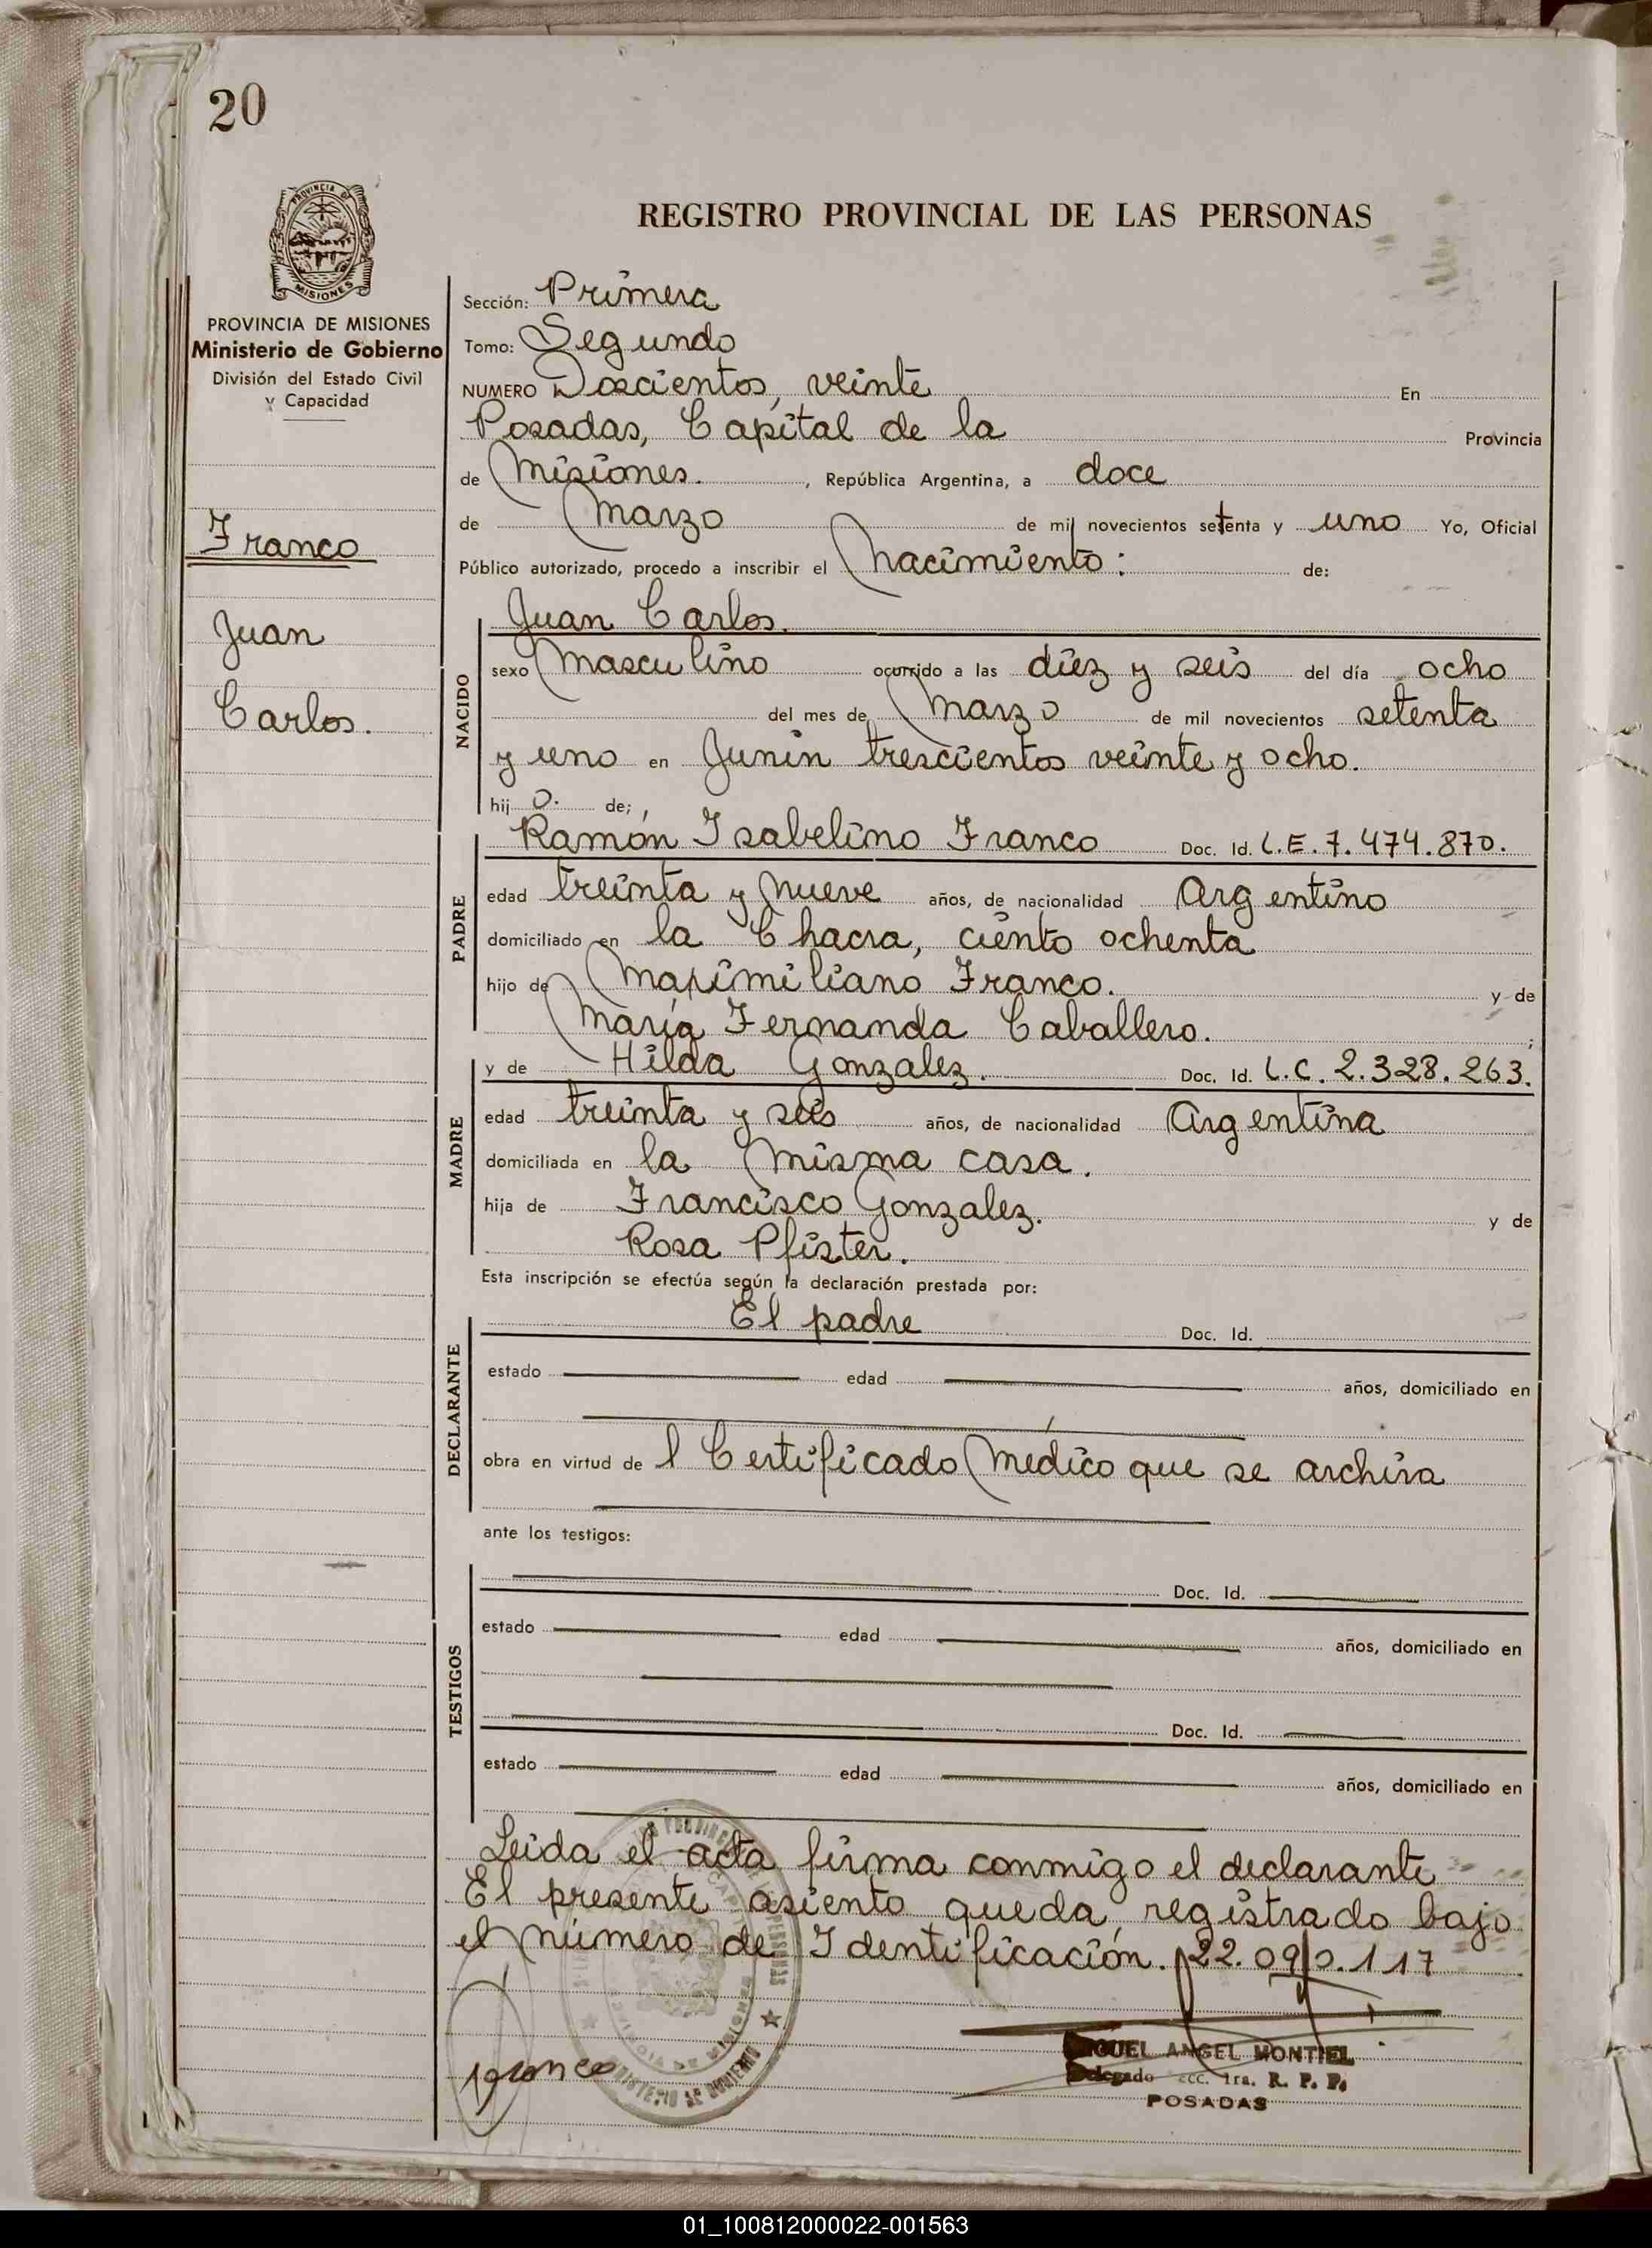 20
PROVINCIA DE
MISIONES
REGISTRO PROVINCIAL DE LAS PERSONAS
PROVINCIA DE MISIONES
Ministerio de Gobierno
División del Estado Civil
y Capacidad
Franco
Juan
Carlos.
Sección: Primera
Tomo: Segundo
NUMERO Doscientos, veinte En
Posadas, Capital de la Provincia
de Misiones. , República Argentina, a doce
de Marzo de mil novecientos setenta y uno Yo, Oficial
Público autorizado, procedo a inscribir el Nacimiento: de:
NACIDO
Juan Carlos.
sexo Masculino ocurrido a las diez y seis del día ocho
del mes de Marzo de mil novecientos setenta
y uno en Junin trescientos veinte y ocho.
hij o. de;
PADRE
Ramón Isabelino Franco Doc. Id. L.E. 7.474.870.
edad treinta y nueve años, de nacionalidad Argentino
domiciliado en la Chacra, ciento ochenta
hijo de Maximiliano Franco. y de
María Fernanda Caballero. ;
MADRE
y de Hilda Gonzalez. Doc. Id. L.C. 2.328.263.
edad treinta y seis años, de nacionalidad Argentina
domiciliada en la misma casa.
hija de Francisco Gonzalez. y de
Rosa Pfister.
Esta inscripción se efectúa según la declaración prestada por:
DECLARANTE
El padre Doc. Id.
estado edad años, domiciliado en
obra en virtud de l Certificado Médico que se archiva
ante los testigos:
TESTIGOS
Doc. Id.
estado edad años, domiciliado en
Doc. Id.
estado edad años, domiciliado en
Leida el acta firma conmigo el declarante
El presente asiento queda registrado bajo
el número de Identificación. 22.090.117
Franco
MIGUEL ANGEL MONTIEL
Delegado 1ra. R. P. P.
POSADAS
01_100812000022-001563